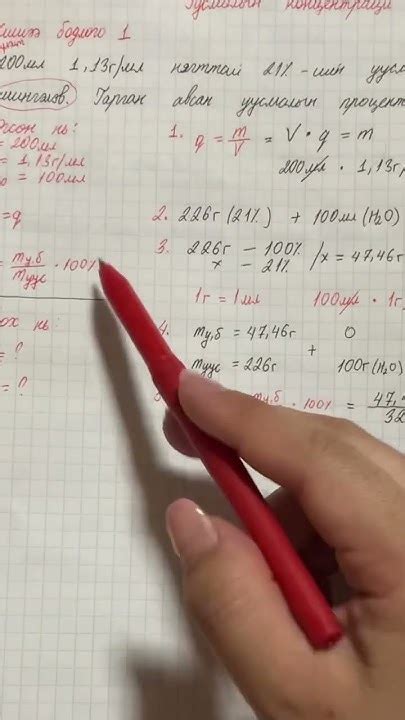 Уусмалын концентраци
Жишиг бодлого 1
200мл 1,13г/мл нягттай 21% -ийн уусм
шингэлэв. Гарган авсан уусмалын процент
нь:
= 200мл
= 1,13г/мл
= 100мл
= q
= mу.б / mуус · 100%
нь:
= ?
= ?
1. q = m/V = V · q = m
200мл · 1,13г
2. 226г (21%) + 100мл (H2O)
3. 226г — 100% / x = 47,46г
x — 21%
1г = 1мл 100мл · 1г
4.
mу.б = 47,46г 0
+
mуус = 226г 100г (H2O)
mу.б · 100% = 47, / 32